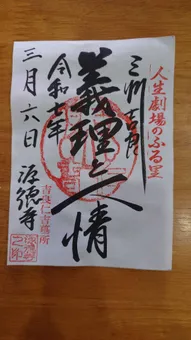 人生劇場のふる里
三州吉良
義理と人情
令和七年
三月六日
源徳寺
吉良仁吉墓所